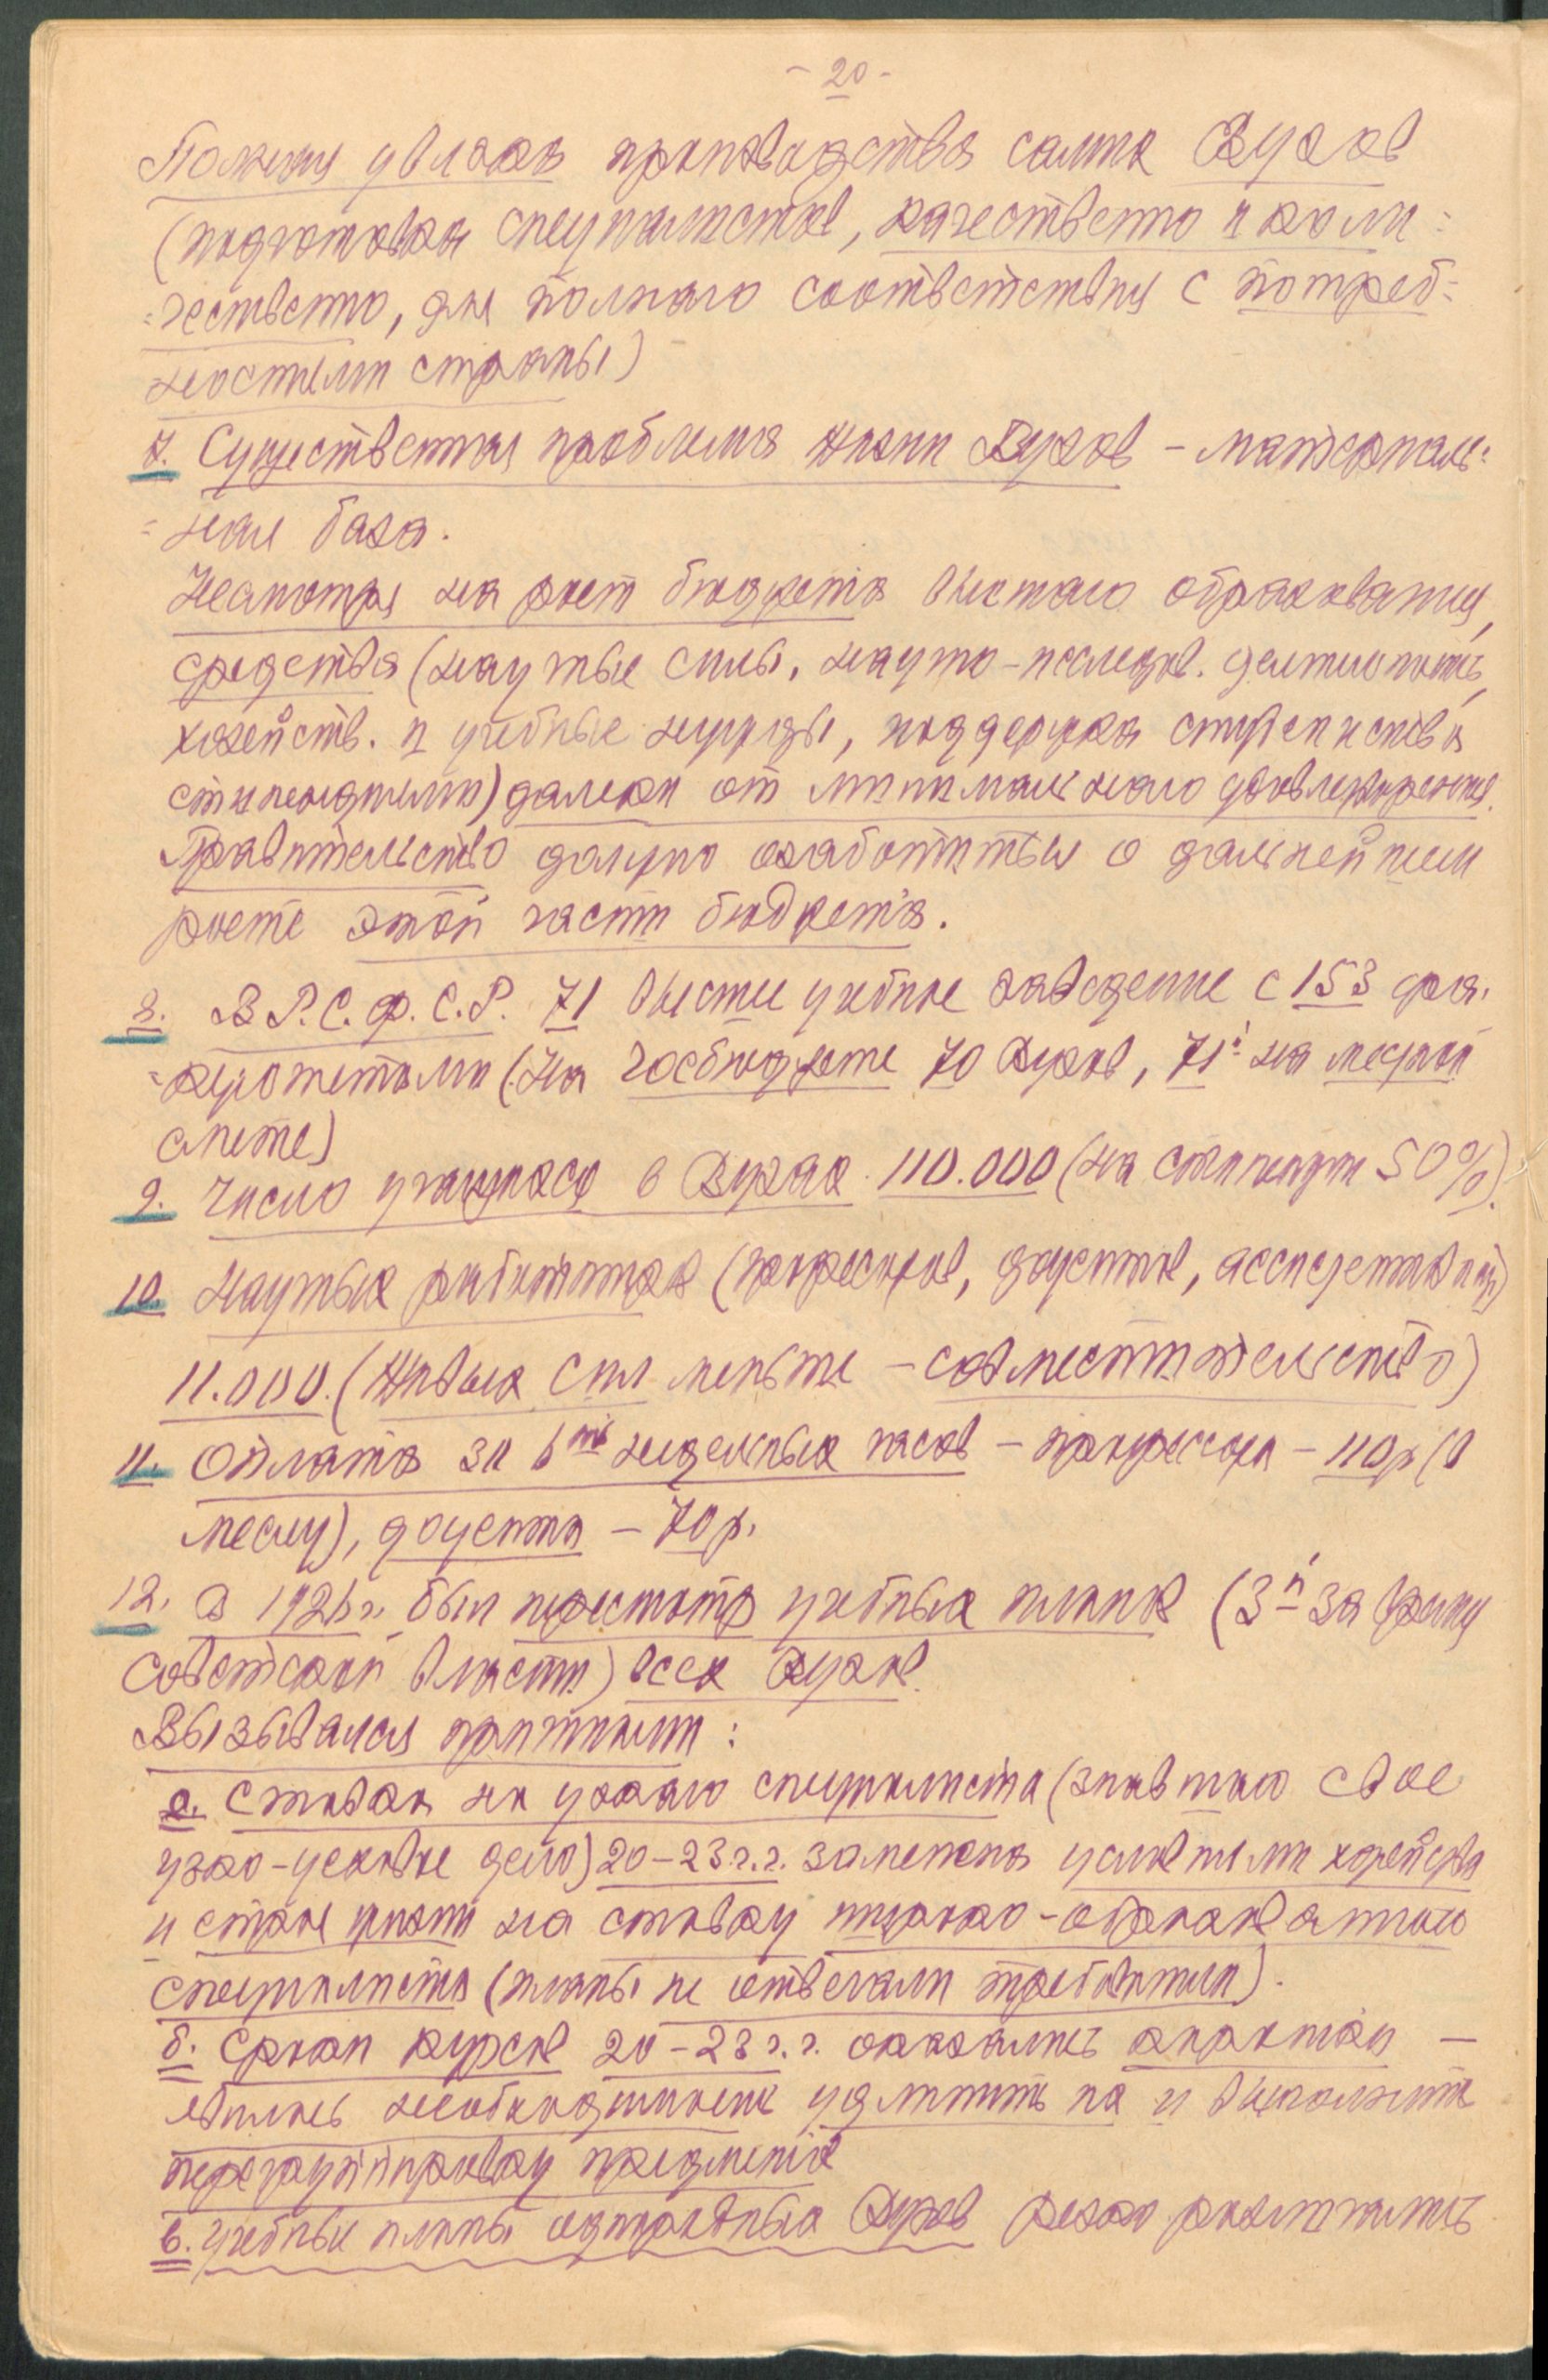 - 20 -
Полная увязка производства самих Вузов
(подготовка специалистов, качественно и коли=
=чественно, для полнаго соответствия с потреб=
ностями страны)
7. Существенная проблема жизни Вузов – материаль=
=ная база.
Несмотря на рост бюджета высшаго образования,
средства (научные силы, научно-исследов. деятельность,
хозяйств. и учебные нужды, поддержка студенчества
стипендиями) далеки от минимальнаго удовлетворения.
Правительство должно озаботиться о дальнейшем
росте этой части бюджета.
8. В Р.С.Ф.С.Р. 71 высшее учебное заведение с 153 фа=
=культетами (На госбюджете 70 Вузов, 71й на местной
смете)
9. Число учащихся в Вузах 110.000 (на стипендии 50%).
10. Научных работников (профессоров, доцентов, ассистентов и др)
11.000. (Живых сил меньше – совместительство)
11. Оплата за 6ть недельных часов – профессора – 110 р (в
месяц), доцента – 70 р.
12. В 1926 г. был пересмотр учебных планов (3й за время
советской власти) всех Вузов.
Вызывался причинами:
а. Ставка на узкаго специалиста (знавшаго свое
узко-цеховое дело) 20–23 г.г. заменена условиями хозяйства
и строя жизни на ставку широко-образованнаго
специалиста (планы не отвечали требованиям).
б. Сроки курсов 20–23 г.г. оказались кратки –
явилась необходимость удлинить их и выполнить
перегруппировку предметов
в. Учебные планы однородных Вузов резко различались